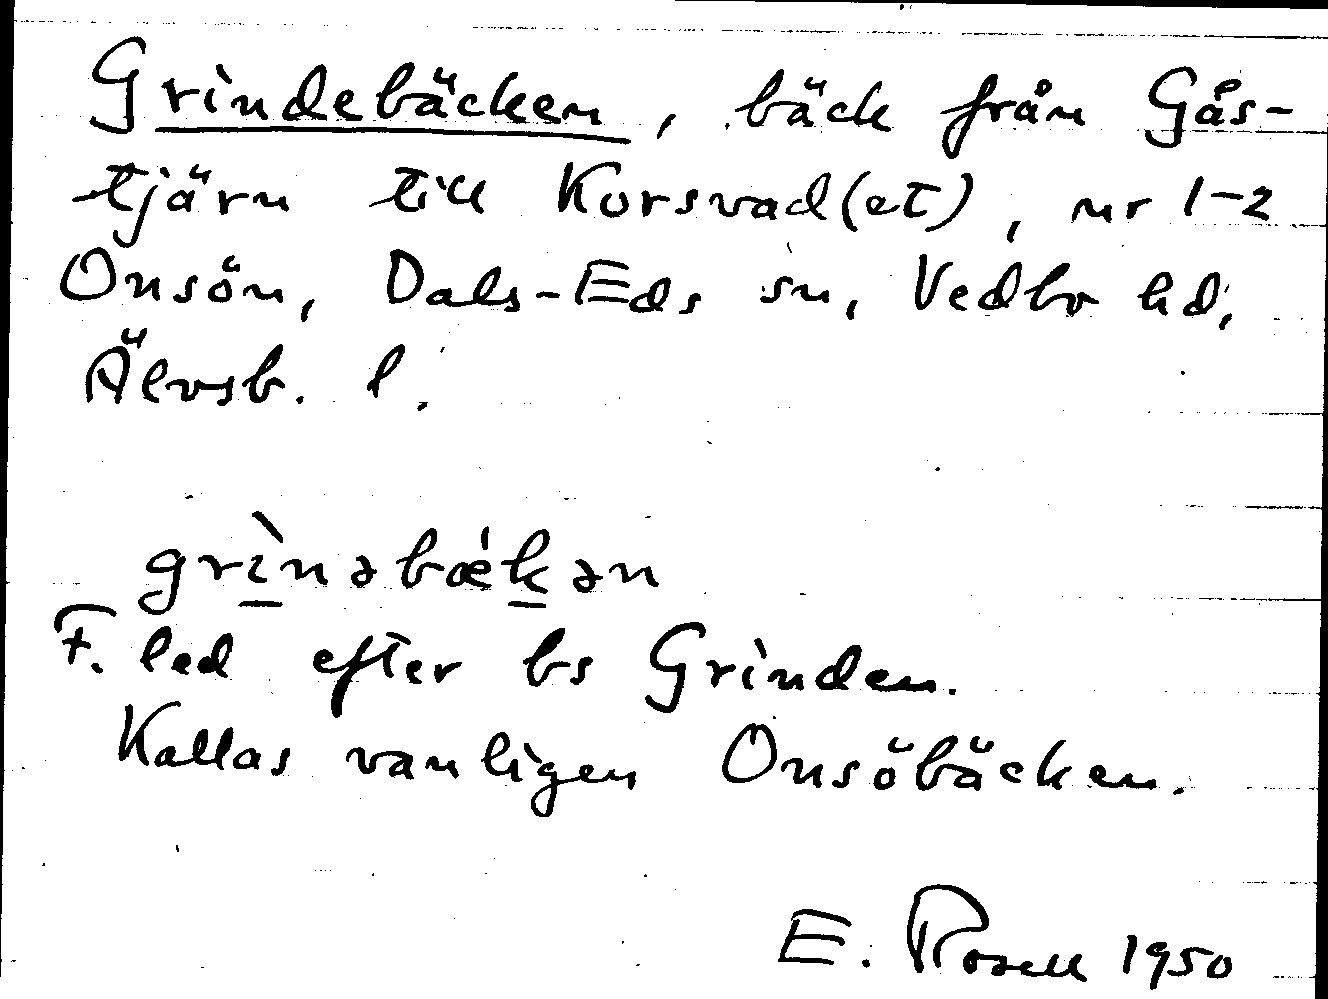 Grindebäcken, bäck från Gås-
tjärn till Korsvad(et), nr 1-2
Onsön, Dals-Eds sn, Vedbo hd,
Älvsb. l.
grı̀nəbǽkən
F. led efter bs Grinden.
Kallas vanligen Onsöbäcken.
E. Rosell 1950